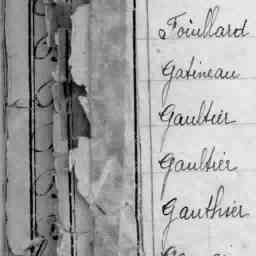 Fouillard
Gatineau
Gaultier
Gaultier
Gauthier